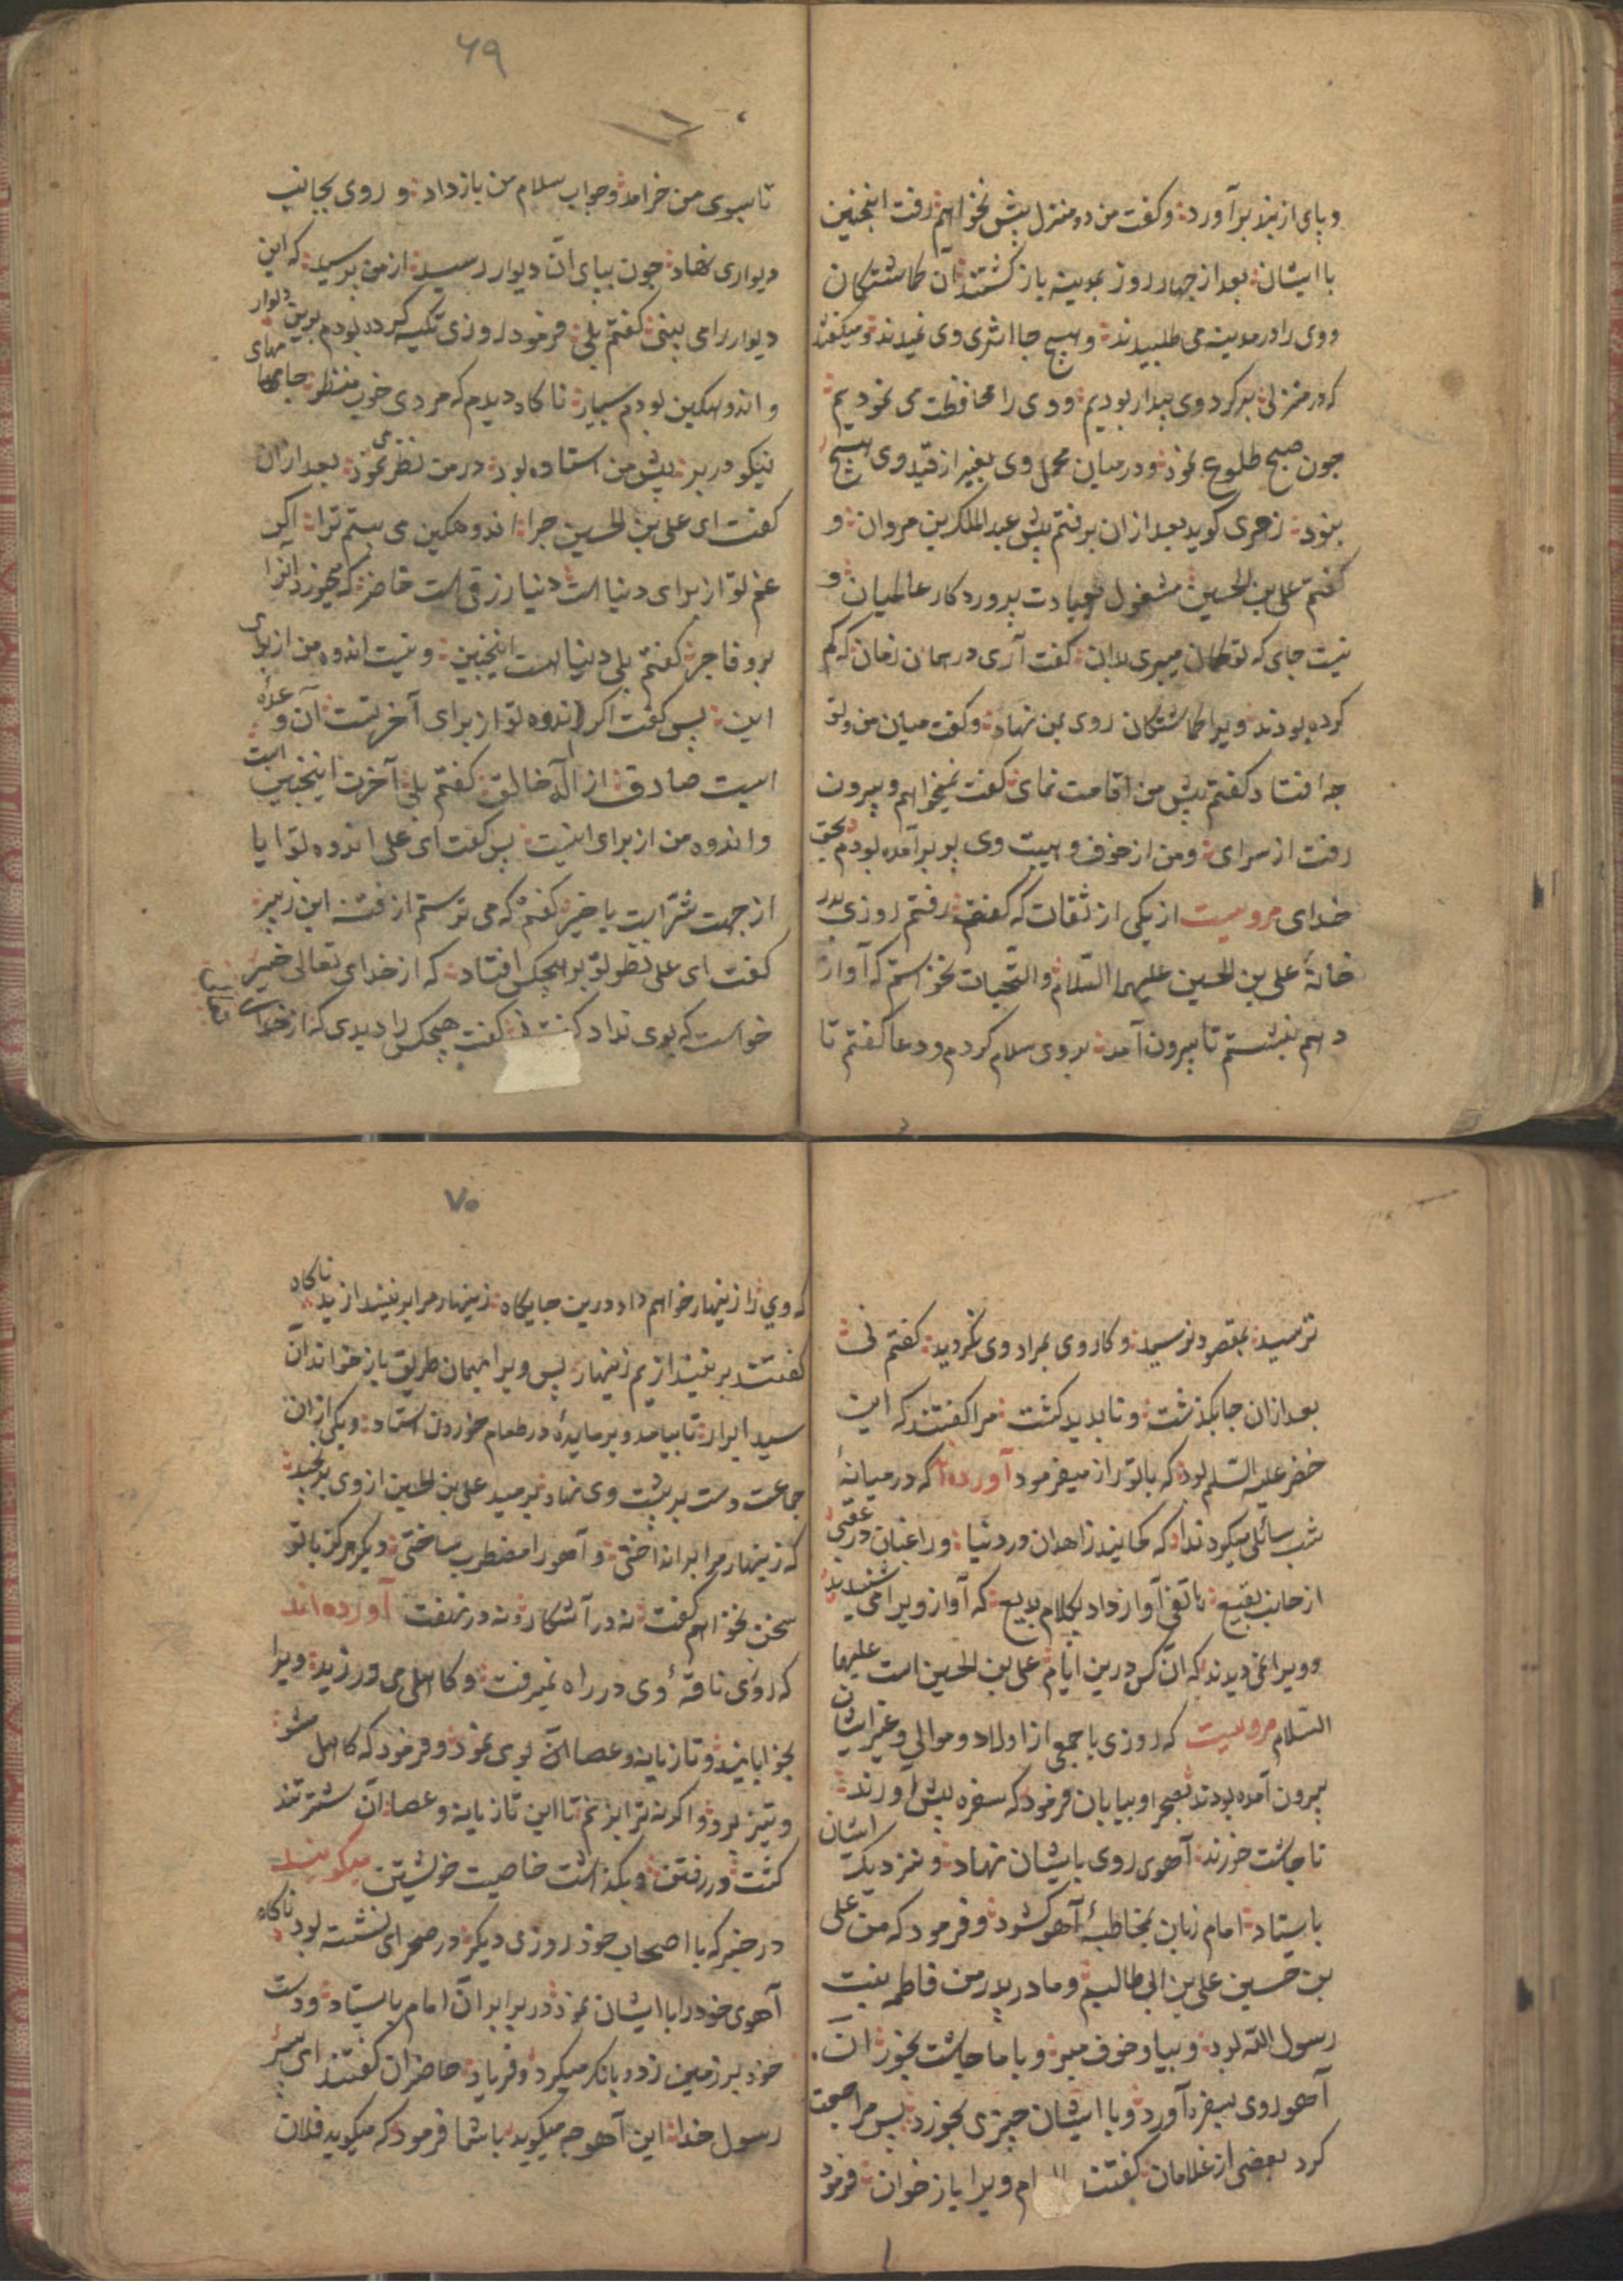 و پای از بند برآورد و کفت من دو منزل بیش نخواهم رفت اینجنین
با ایشان بعد از جهار روز بمدینه باز کشتند آن کماشتکان
و وی را در مدینه می طلبیدند و هیچ جا اثری وی ندیدند و میکفتند
که در منزلی بر کرد وی بیدار بودیم و وی را محافظت می نمودیم
جون صبح طلوع نمود و در میان محمل وی بغیر از قید وی هیچ
نبود زهری کوید بعد از ان برفتم بیش عبد الملک بن مروان و
کفتم علی بن الحسین مشغول بعبادت بروردکار عالمیان و
نیست جای که تو کمان میبری بدان کفت آری در همان زمان که کم
کرده بودند ویرا کماشتکان روی بمن نهاد و کفت میان من و تو
جه افتاد کفتم بیش من اقامت نمای کفت نمیخواهم و بیرون
رفت از سرای و من از خوف و هیبت وی بر برآمده بودم بحق
خدای مرویست از یکی از ثقات که کفت رفتم روزی بدر
خانهٔ علی بن الحسین علیهما السلام و التحیات نخواستم که آواز
دهم بنشستم تا بیرون آمد بر وی سلام کردم و دعا کفتم تا
۶۹
تا بسوی من خرامد و جواب سلام من باز داد و روی بجانب
دیواری نهاد جون ببای آن دیوار رسید از من برسید که این
دیوار را می بینی کفتم بلی فرمود روزی تکیه کرده بودم برین دیوار
و اندوهکین بودم بسیار ناکاه دیدم که مردی خوب منظر جامهای
نیکو در بر بیش من استاده بود در من نظر می نمود بعد از ان
کفت ای علی بن الحسین جرا اندوهکین می بینم ترا اکر
غم تو از برای دنیاست دنیا رزقی است حاضر که میخورد آنرا
بر و فاجر کفتم بلی دنیا است اینجنین و نیست اندوه من از برای
این بس کفت اکر اندوه تو از برای آخرتست آن وعدهٔ
ایست صادق از آلٰه خالق کفتم بلی آخرت اینجنین است
و اندوه من از برای اینیست بس کفت ای علی اندوه تو ایا
از جهت شر است یا خیر کفتم که می ترسم از فتنه ابن زبیر
کفت ای علی نظر تو بر هیجکس افتاد که از خدای تعالی خیر
خواست که بوی نداد کفتم نی کفت هیجکس را دیدی که از خدای تعالی
ترسید بمقصود نرسید و کار وی بمراد وی نکردید کفتم نی
بعد از ان جا بکذشت و نابدید کشت مرا کفتند که این
خضر علیه السلم بود که با تو راز میفرمود آورده‌اند که در میانهٔ
شب سائلی میکرد ندا که کجائیند زاهدان در دنیا و راغبان در عقبی
از جانب بقیع هاتفی آواز داد بکلام بدیع که آواز ویرا می شنیدند
و ویرا نمی دیدند که آن کس درین ایام علی بن الحسین است علیهما
السلام مرویست که روزی با جمعی از اولاد و موالی و غیر ایشان
بیرون آمده بودند بصحرا و بیابان فرمود که سفره بیش اورند
تا جاشت خورند آهوی روی با یشان نهاد و نزدیک ایشان
باستاد امام زبان بمخاطبهٔ آهو کشود و فرمود که من علی
بن حسین علی بن ابی طالبم و مادر بدر من فاطمه بنت
رسول الله بود و بیا و خوف مبر و با ما جاشت بخور آن
آهو روی بسفره آورد و با ایشان جیزی بخورد بس مراجعت
کرد بعضی از غلامان کفتند ویرا باز خوان فرمود
۷۰
که وی را زینهار خواهم داد درین جایکاه زینهار مرا برنیندازید ناکاه
کفتند برنیندازیم زینهار بس ویرا بهمان طریق باز خواند آن
سید ابرار تا بیامد و بر مایدهٔ در طعام خوردن استاد و یکی از ان
جماعت دست بر بشت وی نهاد برمید علی بن الحسین از وی برنجید
که زینهار مرا برانداختی و آهو را مضطرب ساختی دیکر هرکز با تو
سخن نخواهم کفت نه در آشکار و نه در نهفت آورده‌اند
که روزی ناقهٔ وی در راه نمیرفت و کاهلی می ورزید ویرا
بخوابانید و تازیانه و عصا آن بوی نمود و فرمود که کاهل مشو
و تیز برو و اکر نه ترا بزنم تا این تازیانه و عصا آن شتر تند
کشت در رفتن و بکذاشت خاصیت خویشتن میکویند
در خبر که با اصحاب خود روزی دیکر در صحرای نشسته بود ناکاه
آهوی خود را با ایشان نمود در برابر آن امام باستاد و دست
خود بر زمین زد و بانک میکرد و فریاد حاضران کفتند ای بسر
رسول خدا این آهو جه میکوید با شما فرمود که میکوید فلان